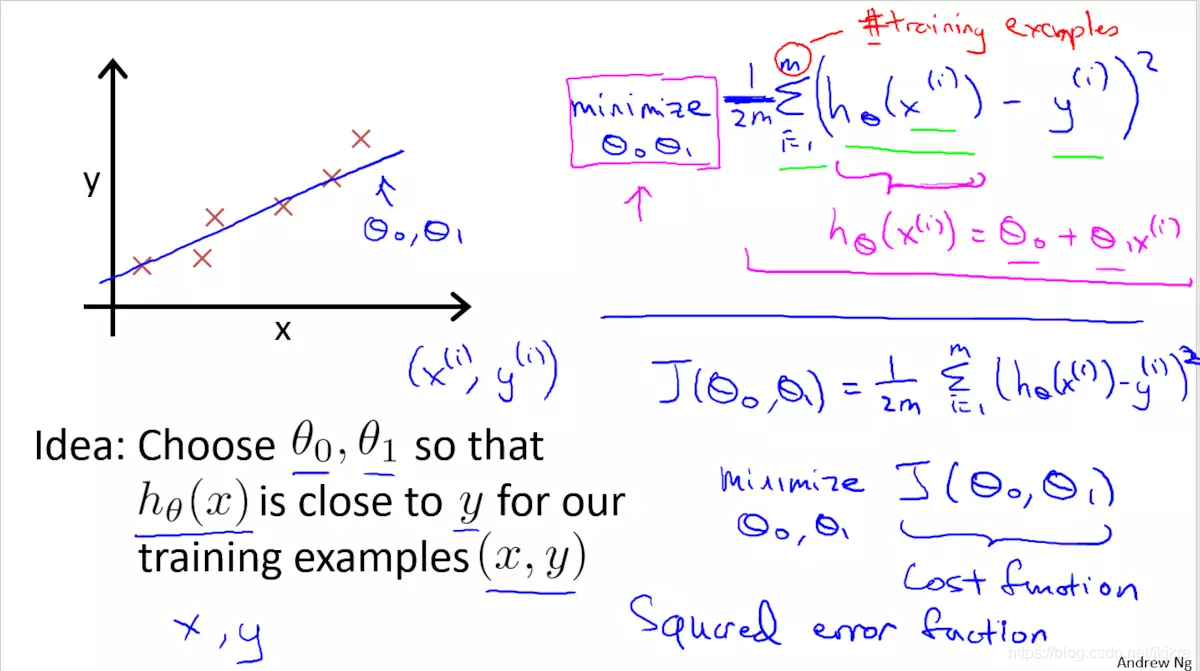 #training examples
minimize
θ₀ θ₁
1/2m Σ_{i=1}^{m} (h_θ(x^{(i)}) - y^{(i)})²
h_θ(x^{(i)}) = θ₀ + θ₁x^{(i)}
y
θ₀, θ₁
x
(x^{(i)}, y^{(i)})
J(θ₀, θ₁) = 1/2m Σ_{i=1}^{m} (h_θ(x^{(i)}) - y^{(i)})²
Idea: Choose θ₀, θ₁ so that
h_θ(x) is close to y for our
training examples (x, y)
x, y
minimize J(θ₀, θ₁)
θ₀, θ₁
Cost function
Squared error function
https://blog.csdn.net/ikikre
Andrew Ng